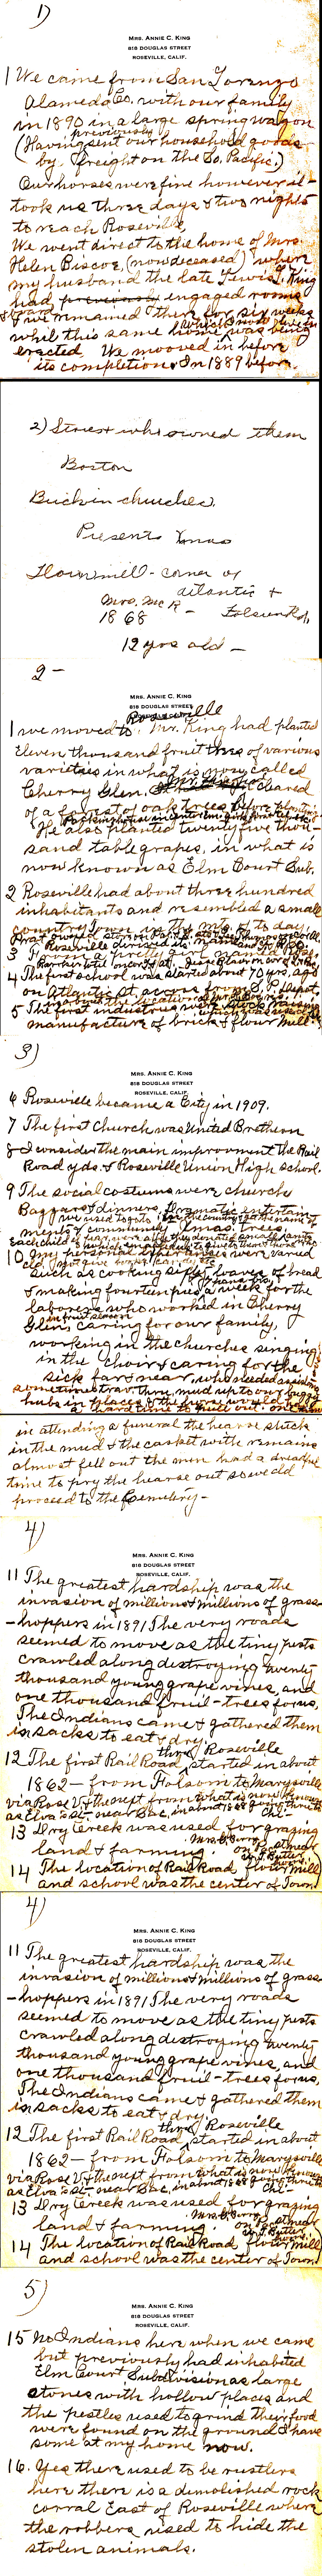 1)
MRS. ANNIE C. KING
818 DOUGLAS STREET
ROSEVILLE, CALIF.
1 We came from San Lorenzo
Alameda Co. with our family
in 1890 in a large spring wagon
previously
(Having sent our household goods
by freight on the So. Pacific.)
Our horses were fine however it
took us three days & two nights
to reach Roseville,
We went direct to the home of Mrs
Helen Biscoe, (now deceased) where
my husband the late Lewis L. King
had previously engaged rooms
& we remained there for six weeks
which I now live in
whil this same home was being
erected We mooved in before
its completion. In 1889 before
2) Stores & who owned them
Boston
Buck in churches,
Presents Xmas
Flour mill - corner of
Atlantic &
Mrs. Mc R - Folsom Rd,
1868
12 yrs old -
2 -
MRS. ANNIE C. KING
818 DOUGLAS STREET
Roseville
1 we moved to Mr. King had planted
Eleven thousand fruit trees of various
varieties in what is now called
Cherry Glen. cleared
of a forest of oak trees before planting
He also planted twenty five thou-
sand table grapes, in what is
now known as Elm Court Sub.
2 Roseville had about three hundred
inhabitants and resembled a small
country
3 Roseville derived its name
4 The first school was started about 70 yrs, ago
on Atlantic St across from S. P. Depot,
5 The first industries were
manufacture of brick & flour Mill
3)
MRS. ANNIE C. KING
818 DOUGLAS STREET
ROSEVILLE, CALIF.
6 Roseville became a City in 1909.
7 The first church was United Brethern
8 I consider the main improvment the Rail
Road yds. & Roseville Union High school.
9 The social costums were church
Bazzars & dinners, Dramatic entertain-
ments & Community Xmas trees,
10 My personal were varied
such as cooking loaves of bread
& making fourteen pies a week for the
laborers who worked in Cherry
in fruit season
Glen, Caring for our family,
working in the churches singing
in the choir & caring for the
sick far & near, who needed assistance
sometimes trav. thru, mud up to our buggy
hubs in places
in attending a funeral the hearse stuck
in the mud & the casket with remains
almost fell out the men had a dreadful
time to pry the hearse out so we cld
proceed to the Cemetery -
4)
MRS. ANNIE C. KING
818 DOUGLAS STREET
ROSEVILLE, CALIF.
11 The greatest hardship was the
invasion of millions & millions of grass
-hoppers in 1891 The very roads
seemed to move as the tiny pests
crawled along destroying twenty
thousand young grape vines, and
one thousand fruit-trees for us,
The Indians came & gathered them
in sacks to eat & dry.
thru Roseville
12 The first Rail Road started in about
1862 - from Folsom to Marysville
via Rose V & the next from what is now known
as Elva's St - near Sac, in about 1868 going thru to
Chi -
13 Dry Creek was used for grazing
land & farming.
14 The location of Railroad, flour mill
and school was the center of Town.
4)
MRS. ANNIE C. KING
818 DOUGLAS STREET
ROSEVILLE, CALIF.
11 The greatest hardship was the
invasion of millions & millions of grass
-hoppers in 1891 The very roads
seemed to move as the tiny pests
crawled along destroying twenty
thousand young grape vines, and
one thousand fruit-trees for us,
The Indians came & gathered them
in sacks to eat & dry.
thru Roseville
12 The first Rail Road started in about
1862 - from Folsom to Marysville
via Rose V & the next from what is now known
as Elva's St - near Sac, in about 1868 going thru to
Chi -
13 Dry Creek was used for grazing
land & farming.
14 The location of Railroad, flour mill
and school was the center of Town.
5)
MRS. ANNIE C. KING
818 DOUGLAS STREET
ROSEVILLE, CALIF.
15 No Indians here when we came
but previously had inhabited
Elm Court Subdivision as large
stones with hollow places and
the pestles used to grind their food
were found on the ground & have
some at my home now.
16. Yes there used to be rustlers
here there is a demolished rock
corral East of Roseville where
the robbers used to hide the
stolen animals.